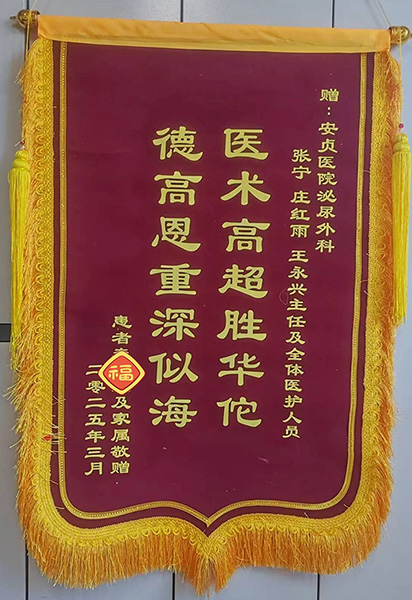 赠：安贞医院泌尿外科
张宁 庄红雨 王永兴主任及全体医护人员
医术高超胜华佗
德高恩重深似海
患者 福 及家属敬赠
二零二五年三月